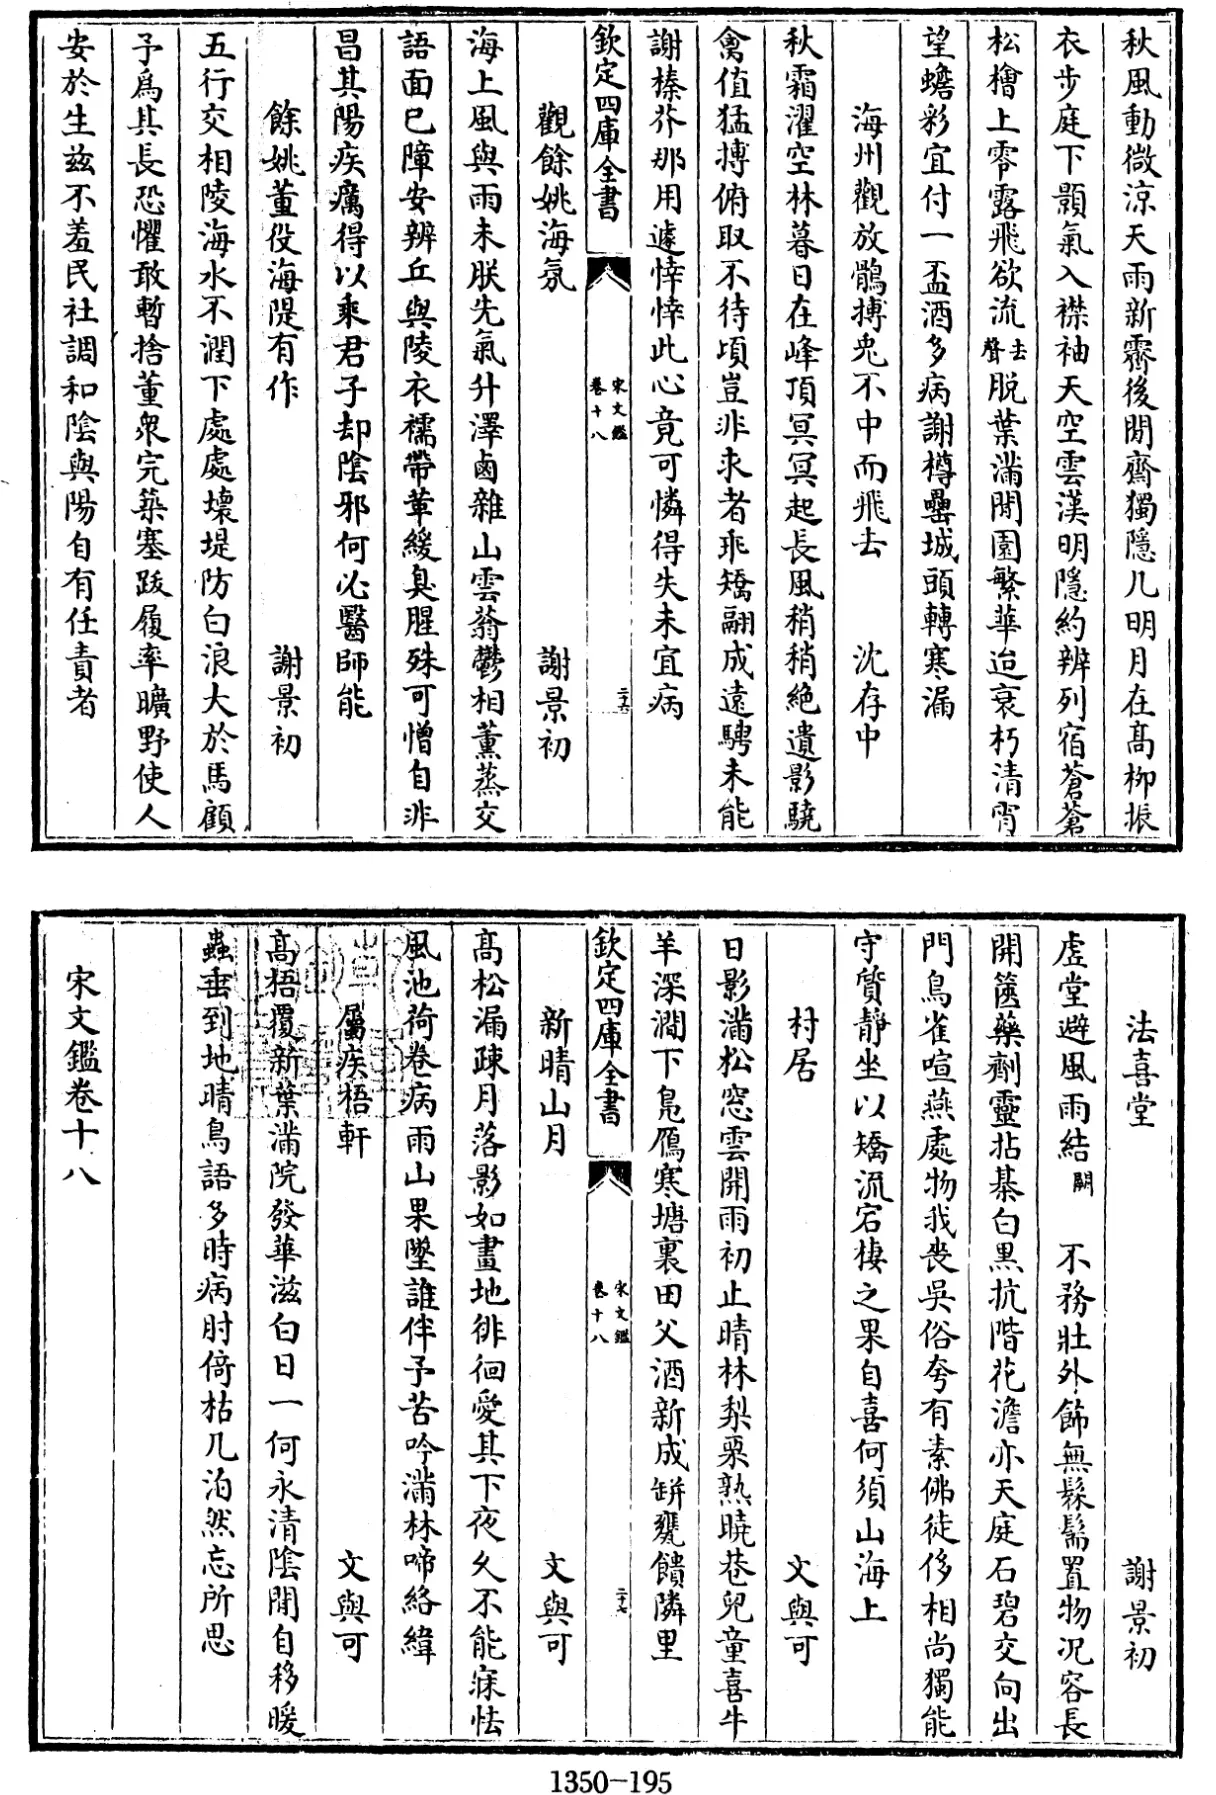 秋風動微涼天雨新霽後閒齋獨隱几明月在髙柳振
衣步庭下顥氣入襟袖天空雲漢明隱約辨列宿蒼蒼
松檜上零露飛欲流去聲脱葉滿閒園繁華迨衰朽清宵
望蟾彩宜付一盃酒多病謝樽罍城頭轉寒漏
海州觀放鶻搏兎不中而飛去 沈存中
秋霜濯空林暮日在峰頂冥冥起長風稍稍絶遺影驍
禽值猛摶俯取不待頃豈非求者乖矯翮成遠騁未能
謝榛芥那用遽悻悻此心竟可憐得失未宜病
欽定四庫全書 宋文鑑 卷十八 二十六
觀餘姚海氛 謝景初
海上風與雨未朕先氣升澤鹵雜山雲蓊鬱相薰蒸交
語面已障安辨丘與陵衣襦帶葷緩臭腥殊可憎自非
昌其陽疾癘得以乘君子却陰邪何必醫師能
餘姚董役海隄有作 謝景初
五行交相陵海水不潤下處處壞堤防白浪大於馬顧
予爲其長恐懼敢暫捨董衆完築塞跋履率曠野使人
安於生兹不羞民社調和陰與陽自有任責者
法喜堂 謝景初
虚堂避風雨結闕 不務壯外飾無髹髹置物况容長
開篋藥劑靈拈棊白黒抗階花澹亦天庭石碧交向出
門鳥雀喧燕處物我喪吳俗夸有素佛徒侈相尚獨能
守質靜坐以矯流宕棲之果自喜何須山海上
村居 文與可
日影滿松窓雲開雨初止晴林梨栗熟曉巷兒童喜牛
羊深澗下鳬鴈寒塘裏田父酒新成缾甕饋隣里
欽定四庫全書 宋文鑑 卷十八 二十七
新晴山月 文與可
髙松漏疎月落影如畫地徘徊愛其下夜久不能寐怯
風池荷卷病雨山果墜誰伴予苦吟滿林啼絡緯
屬疾梧軒 文與可
髙梧覆新葉滿院發華滋白日一何永清陰閒自移暖
蟲垂到地晴鳥語多時病肘倚枯几泊然忘所思
宋文鑑卷十八
1350-195